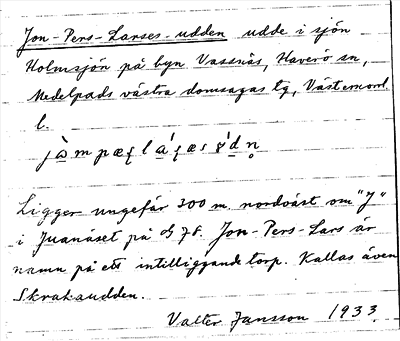 Jon-Pers-Larses-udden udde i sjön
Holmsjön på byn Vassnäs, Haverö sn,
Medelpads västra domsagas tg, Västernorrl.
l.
Ligger ungefär 300 m. nordväst om "J"
i Juanäset på df 78. Jon-Pers-Lars är
namn på ett intilliggande torp. Kallas även
Skrakaudden.
Valter Jansson 1933.